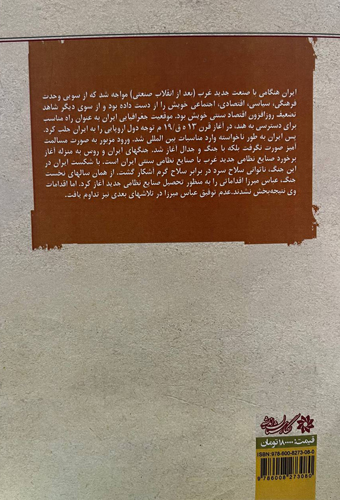 ایران هنگامی با صنعت جدید غرب (بعد از انقلاب صنعتی) مواجه شد که از سویی وحدت
فرهنگی، سیاسی، اقتصادی، اجتماعی خویش را از دست داده بود و از سوی دیگر شاهد
تضعیف روزافزون اقتصاد سنتی خویش بود. موقعیت جغرافیایی ایران به عنوان راه مناسب
برای دسترسی به هند، در آغاز قرن ۱۳ ه ق/۱۹ م توجه دول اروپایی را به ایران جلب کرد.
پس ایران به طور ناخواسته وارد مناسبات بین المللی شد. ورود مزبور به صورت مسالمت
آمیز صورت نگرفت بلکه با جنگ و جدال آغاز شد. جنگهای ایران و روس به منزله آغاز
برخورد صنایع نظامی جدید غرب با صنایع نظامی سنتی ایران است. با شکست ایران در
این جنگ، ناتوانی سلاح سرد در برابر سلاح گرم آشکار گشت. از همان سالهای نخست
جنگ، عباس میرزا اقداماتی را به منظور تحصیل صنایع نظامی جدید آغاز کرد. اما اقدامات
وی نتیجه‌بخش نشدند.عدم توفیق عباس میرزا در تلاشهای بعدی نیز تداوم یافت.
قیمت: ۱۸۰۰۰ تومان
ISBN: 978-600-8273-06-0
9786008273060